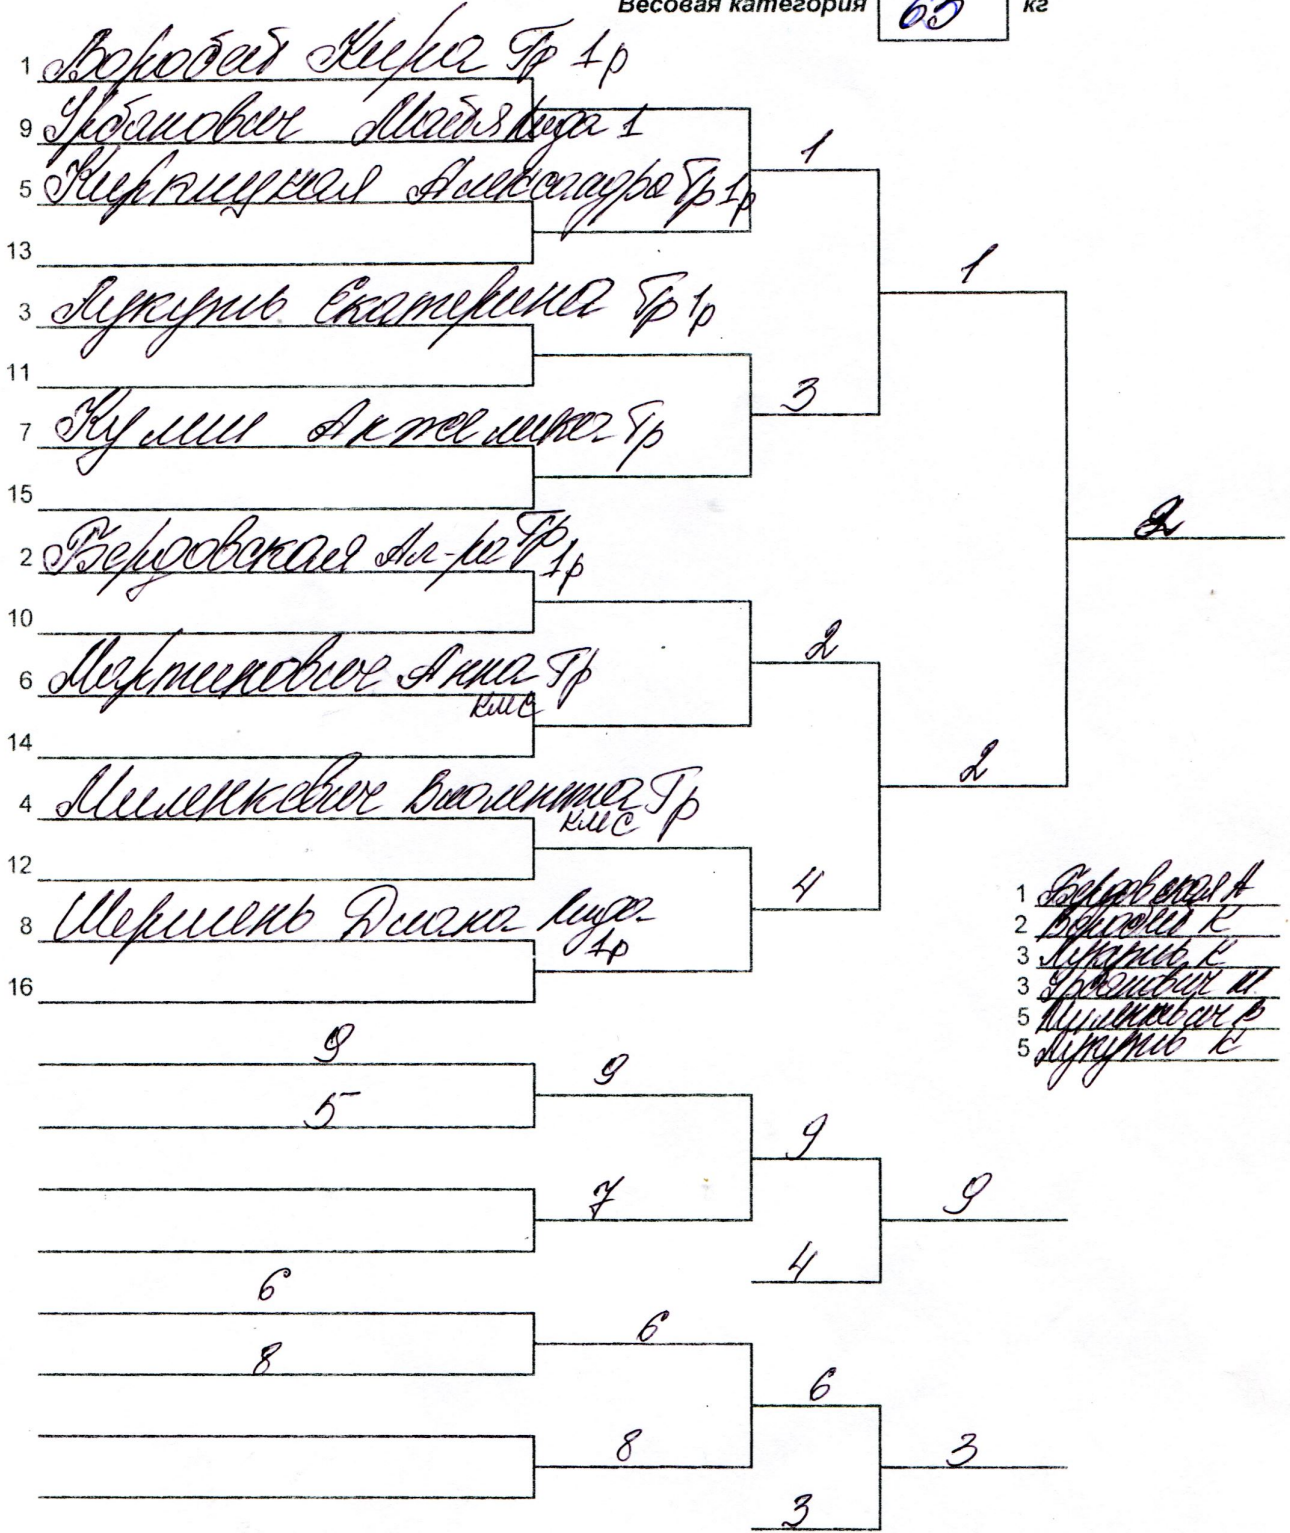 Весовая категория 63 кг
1 Воробей Кира Гр 1р
9 Урбанович Майя Лида 1
1
5 Киркицкая Александра Гр 1р
13
1
3 Лукуть Екатерина Гр 1р
11
3
7 Кулиш Анжелика Гр
15
2
2 Бердовская Ал-ра Гр 1р
10
2
6 Мартинович Анна Гр
КМС
14
2
4 Миленкевич Виолетта Гр
КМС
12
4
8 Шершень Диана Лида
1р
16
1 Бердовская А
2 Воробей К
3 Лукуть К
3 Урбанович М
5 Миленкевич В
5 Лукуть К
9
9
5
9
7
9
4
6
6
8
6
8
3
3